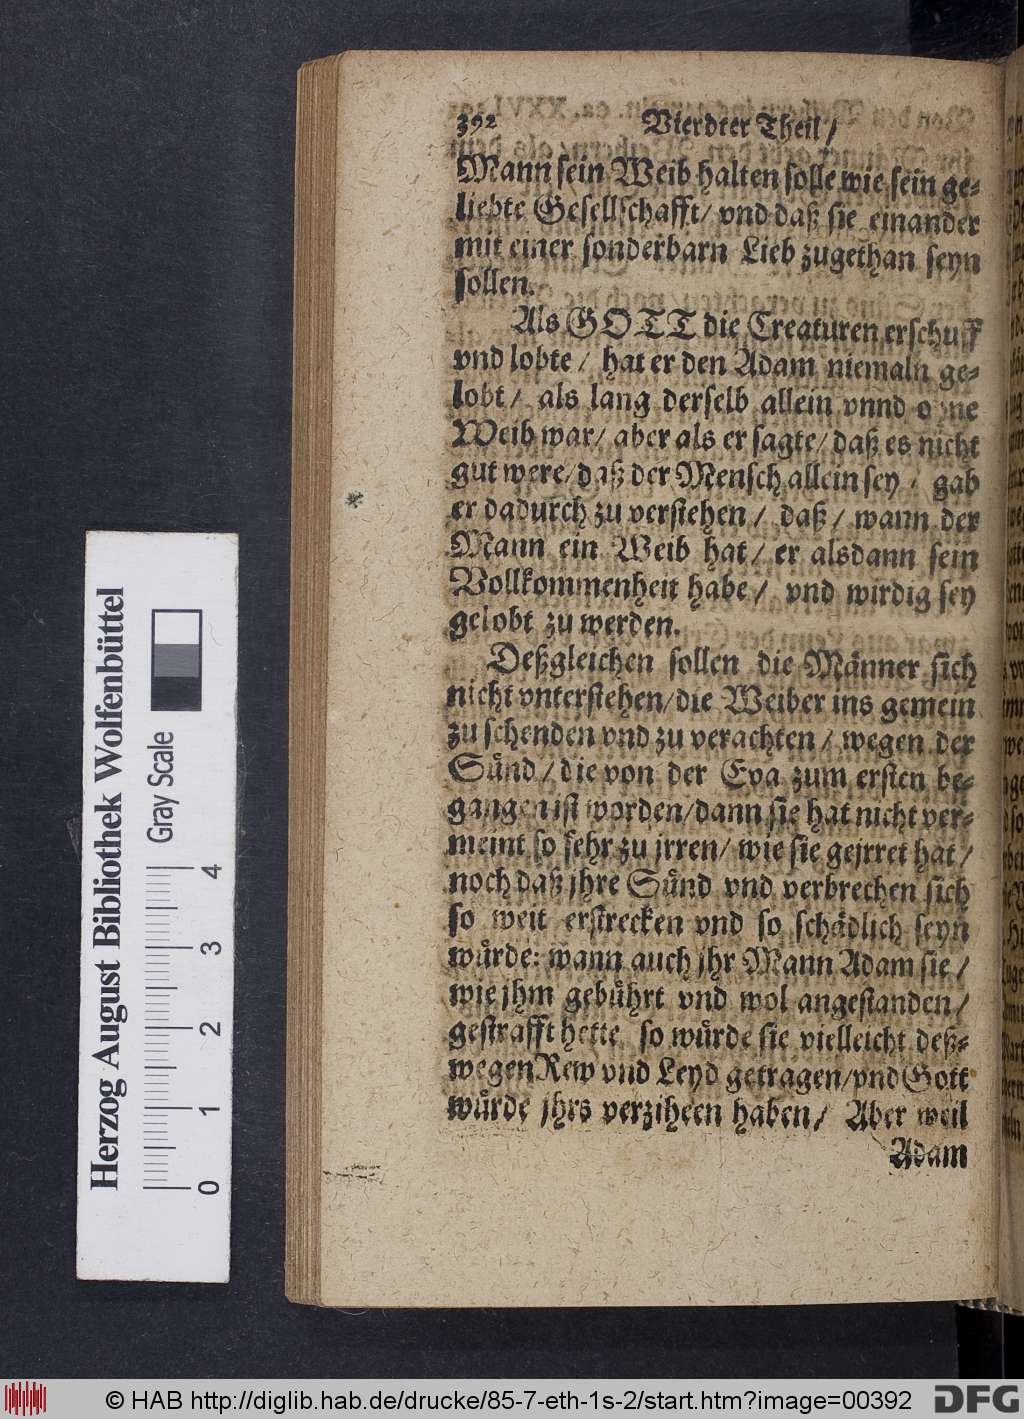 392 Vierdter Theil /
Mann sein Weib halten solle wie sein ge-
liebte Gesellschafft/ vnd daß sie einander
mit einer sonderbarn Lieb zugethan seyn
sollen.
Als GOTT die Creaturen erschuff
vnd lobte / hat er den Adam niemaln ge-
lobt / als lang derselb allein vnnd ohne
Weib war/ aber als er sagte/ daß es nicht
gut were/ daß der Mensch allein sey / gab
er dadurch zu verstehen / daß / wann der
Mann ein Weib hat / er alsdann sein
Vollkommenheit habe / vnd wirdig sey
gelobt zu werden.
Deßgleichen sollen die Männer sich
nicht vnterstehen/ die Weiber ins gemein
zu schenden vnd zu verachten / wegen der
Sünd / die von der Eva zum ersten be-
gangen ist worden/ dann sie hat nicht ver-
meint so sehr zu jrren/ wie sie gejrret hat /
noch daß jhre Sünd vnd verbrechen sich
so weit erstrecken vnd so schädlich seyn
würde: wann auch jhr Mann Adam sie /
wie jhm gebührt vnd wol angestanden /
gestrafft hette, so würde sie vielleicht deß-
wegen Rew vnd Leyd getragen/ vnd Gott
würde jhrs verziheen haben / Aber weil
Adam
Herzog August Bibliothek Wolfenbüttel
Gray Scale
0 1 2 3 4
© HAB http://diglib.hab.de/drucke/85-7-eth-1s-2/start.htm?image=00392
DFG